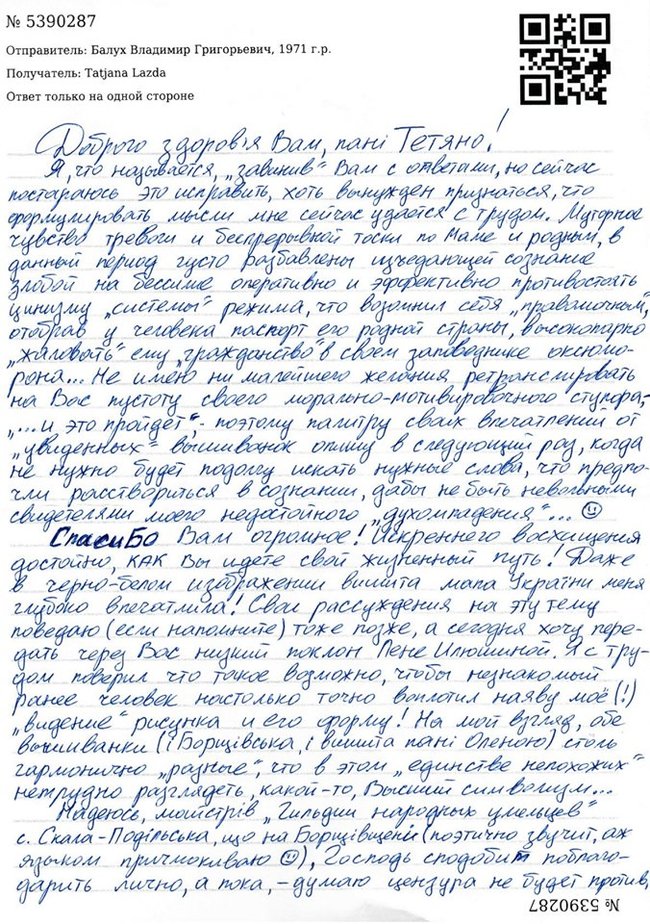 № 5390287
Отправитель: Балух Владимир Григорьевич, 1971 г.р.
Получатель: Tatjana Lazda
Ответ только на одной стороне
Доброго здоров'я Вам, пані Тетяно!
Я, что называется, „завинив" Вам с ответами, но сейчас
постараюсь это исправить, хоть вынужден признаться, что
формулировать мысли мне сейчас удаётся с трудом. Муторное
чувство тревоги и беспрерывной тоски по Маме и родным, в
данный период густо разбавлены изъедающей сознание
злобой на бессилие оперативно и эффективно противостоять
цинизму „системы" режима, что возомнил себя „правомочным",
отобрав у человека паспорт его родной страны, высокопарно
„жаловать" ему „гражданство" в своем заповеднике оксюмо-
рона... Не имею ни малейшего желания ретранслировать
на Вас пустоту своего морально-мотивировочного ступора,-
„...и это пройдет",- поэтому палитру своих впечатлений от
„увиденных" вышиванок опишу в следующий раз, когда
не нужно будет подолгу искать нужные слова, что предпо-
чли расствориться в сознании, дабы не быть невольными
свидетелями моего недостойного „духомпадения"... ☺
СпасиБо Вам огромное! Искреннего восхищения
достойно, КАК Вы идете свой жизненный путь! Даже
в черно-белом изображении вишита мапа України меня
глубоко впечатлила! Свои рассуждения на эту тему
поведаю (если напомните) тоже позже, а сегодня хочу пере-
дать через Вас низкий поклон Лене Илюшиной. Я с тру-
дом поверил что такое возможно, чтобы незнакомый
ранее человек настолько точно воплотил наяву моё (!)
„видение" рисунка и его форму! На мой взгляд, обе
вышиванки (і Борщівська, і вишита пані Оленою) столь
гармонично „разные", что в этом „единстве непохожих"
нетрудно разглядеть, какой-то, Высший символизм...
Надеюсь, майстрів „Гильдии народных умельцев"
с. Скала-Подільська, що на Борщівщені (поэтично звучит, аж
языком причмокиваю ☺), Господь сподобит поблаго-
дарить лично, а пока, - думаю цензура не будет против,
№ 5390287